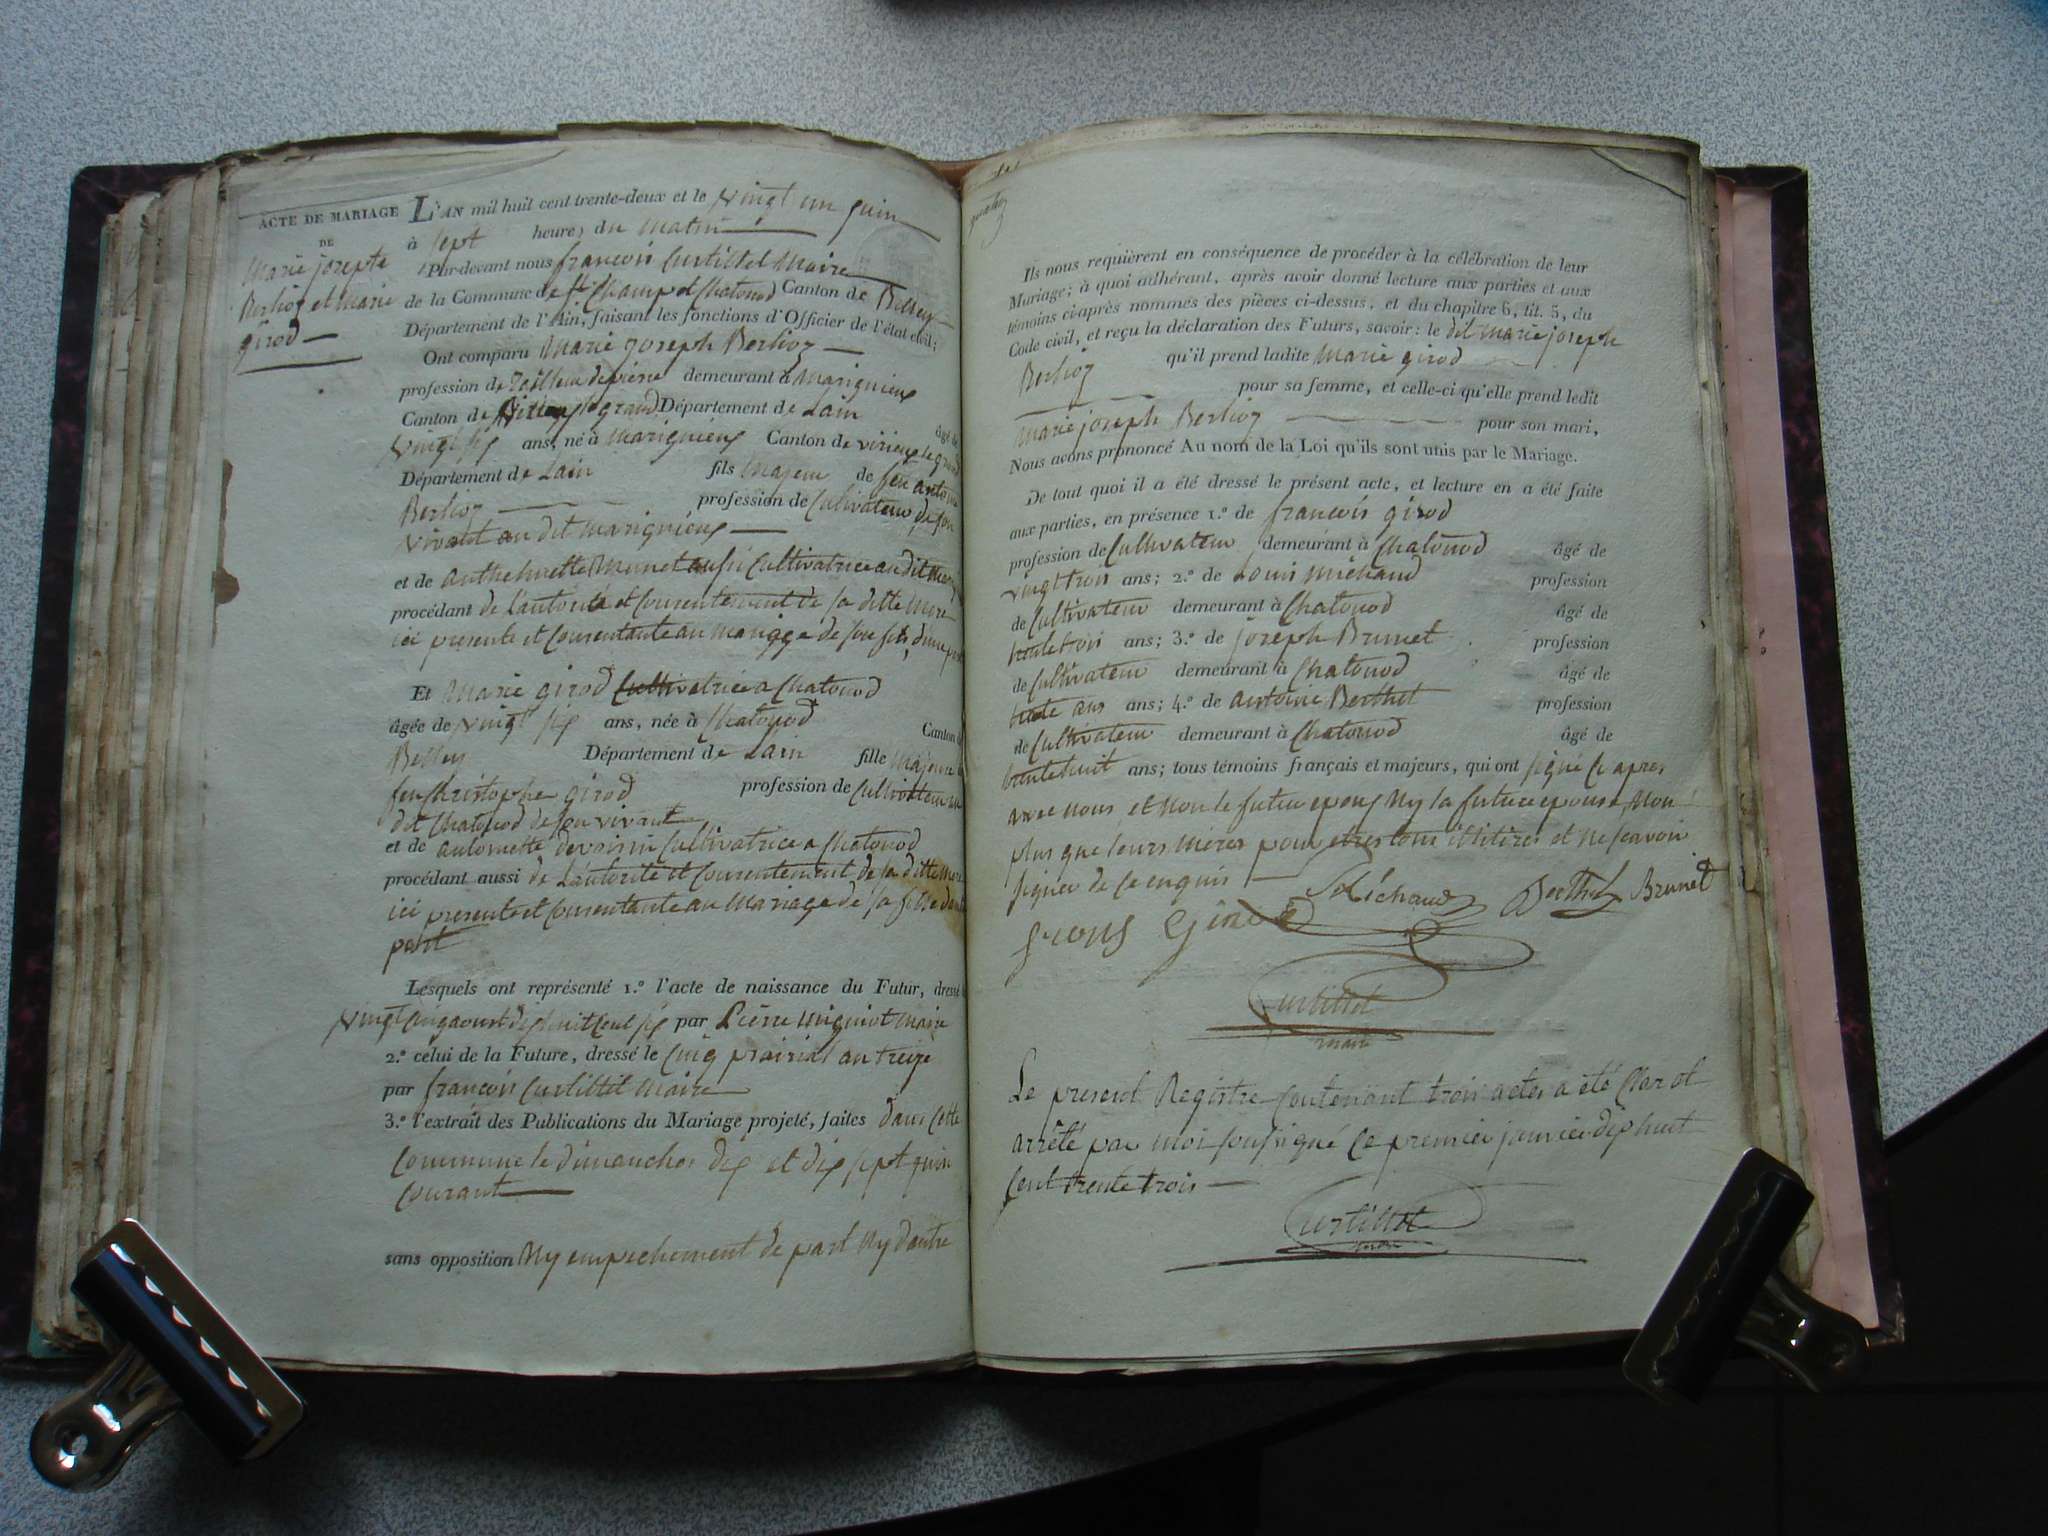 ACTE DE MARIAGE
DE
Marie josepte
Berlioz et marie
girod
L'AN mil huit cent trente-deux et le vingt un juin
à sept heures du matin
Par-devant nous françois Curtillet Maire
de la Commune de St Champ et Chatonod Canton de Belley
Département de l'Ain, faisant les fonctions d'Officier de l'état civil;
Ont comparu Marie joseph Berlioz
profession de Tailleur de pierre demeurant à Marignieux
Canton de Virieux le grand Département de Lain âgé de
vingt six ans, né à Marignieux Canton de virieux le grand
Département de Lain fils Majeur de feu antoine
Berlioz profession de Cultivateur de son
vivant au dit marignieux
et de anthelmette Munet aussi Cultivatrice au dit
procédant de l'autorité et Consentement de sa ditte Mere
ici presente et Consentante au mariage de son fils, d'une part
Et Marie girod Cultivatrice a Chatonod
âgée de vingt six ans, née à Chatonod Canton de
Belley Département de Lain fille Majeure
feu Christophe girod profession de Cultivateur au
dit Chatonod de son vivant
et de antoinette devoisin Cultivatrice a Chatonod
procédant aussi de L'autorité et Consentement de sa ditte Mere
ici presente et Consentante au Mariage de sa fille d'autre
part
Lesquels ont représenté 1.º l'acte de naissance du Futur, dressé
vingt cinq aoust dix huit Cent six par Pierre Maire
2.º celui de la Future, dressé le Cinq prairial an treize
par françois Curtillet Maire
3.º l'extrait des Publications du Mariage projeté, faites dans Cette
Commune le dimanches dix et dix sept juin
Courant
sans opposition Ny empechement de part Ny dautre
Ils nous requièrent en conséquence de procéder à la célébration de leur
Mariage; à quoi adhérant, après avoir donné lecture aux parties et aux
témoins ci-après nommés des pièces ci-dessus, et du chapitre 6, tit. 5, du
Code civil, et reçu la déclaration des Futurs, savoir: le dit marie joseph
Berlioz qu'il prend ladite Marie girod
pour sa femme, et celle-ci qu'elle prend ledit
Marie joseph Berlioz pour son mari,
Nous avons prononcé Au nom de la Loi qu'ils sont unis par le Mariage.
De tout quoi il a été dressé le présent acte, et lecture en a été faite
aux parties, en présence 1.º de françois girod
profession de Cultivateur demeurant à Chatonod âgé de
vingt trois ans; 2.º de Louis Michaud profession
de Cultivateur demeurant à Chatonod âgé de
trente trois ans; 3.º de joseph Brunet profession
de Cultivateur demeurant à Chatonod âgé de
trente ans ans; 4.º de antoine Berthet profession
de Cultivateur demeurant à Chatonod âgé de
trente huit ans; tous témoins français et majeurs, qui ont signé Ce apres
avec nous et Non le futur epoux Ny la future epouse, Non
plus que leurs Meres pour etres tous illitirés et ne scavoir
signer de Ce enquis
Michaud Berthet Brunet
Curtillet
maire
Le present Registre Contenant trois actes a été Clos et
arrêté par moi soussigné Ce premier janvier dix huit
Cent trente trois
Curtillet
maire